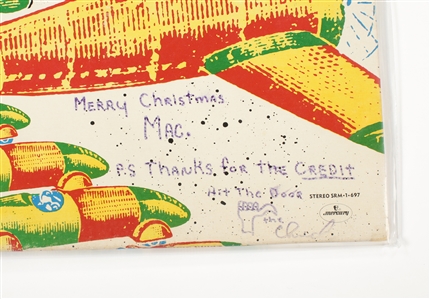 Merry Christmas
Mac.
P.S Thanks for the CREDIT
Hit The Door
STEREO SRM-1-697
the
mercury